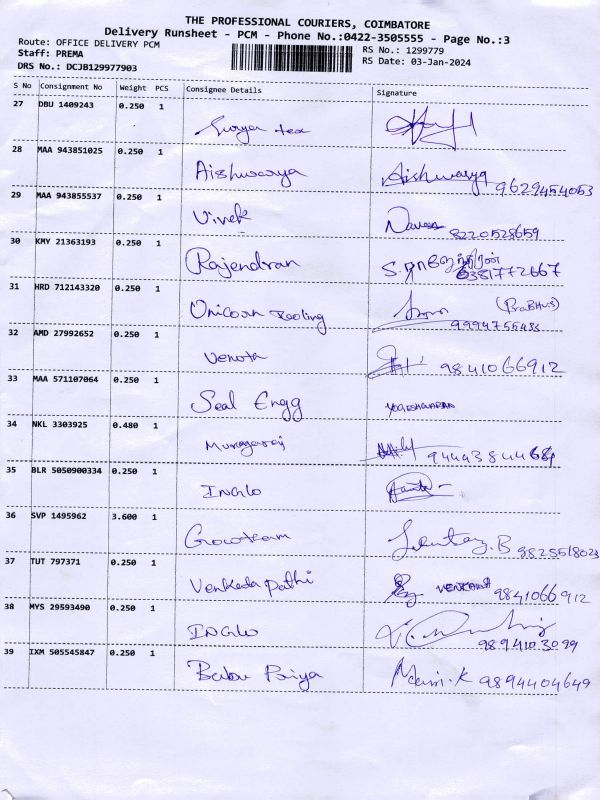 THE PROFESSIONAL COURIERS, COIMBATORE
Delivery Runsheet - PCM - Phone No.:0422-3505555 - Page No.:3
Route: OFFICE DELIVERY PCM
RS No.: 1299779
Staff: PREMA
RS Date: 03-Jan-2024
DRS No.: DCJB129977903
S No Consignment No Weight PCS Consignee Details Signature
27 DBU 1409243 0.250 1
Surya tex
28 MAA 943851025 0.250 1
Aishwarya Aishwarya 9629454053
29 MAA 943855537 0.250 1
Vivek Naveen 8220528659
30 KMY 21363193 0.250 1
Rajendran 6381772667
31 HRD 712143320 0.250 1
Unicorn Tooling (PraBHU)
32 AMD 27992652 0.250 1
9841066912
33 MAA 571107064 0.250 1
Seal Engg YOGESHWARAN
34 NKL 3303925 0.480 1
Murugaraj
35 BLR 5050900334 0.250 1
INGLO
36 SVP 1495962 3.600 1
Growteam
37 TUT 797371 0.250 1
Venkedapathi 9841066912
38 MYS 29593490 0.250 1
INGLO 9894103099
39 IXM 505545847 0.250 1
Babu Priya Mani.K 9894404649